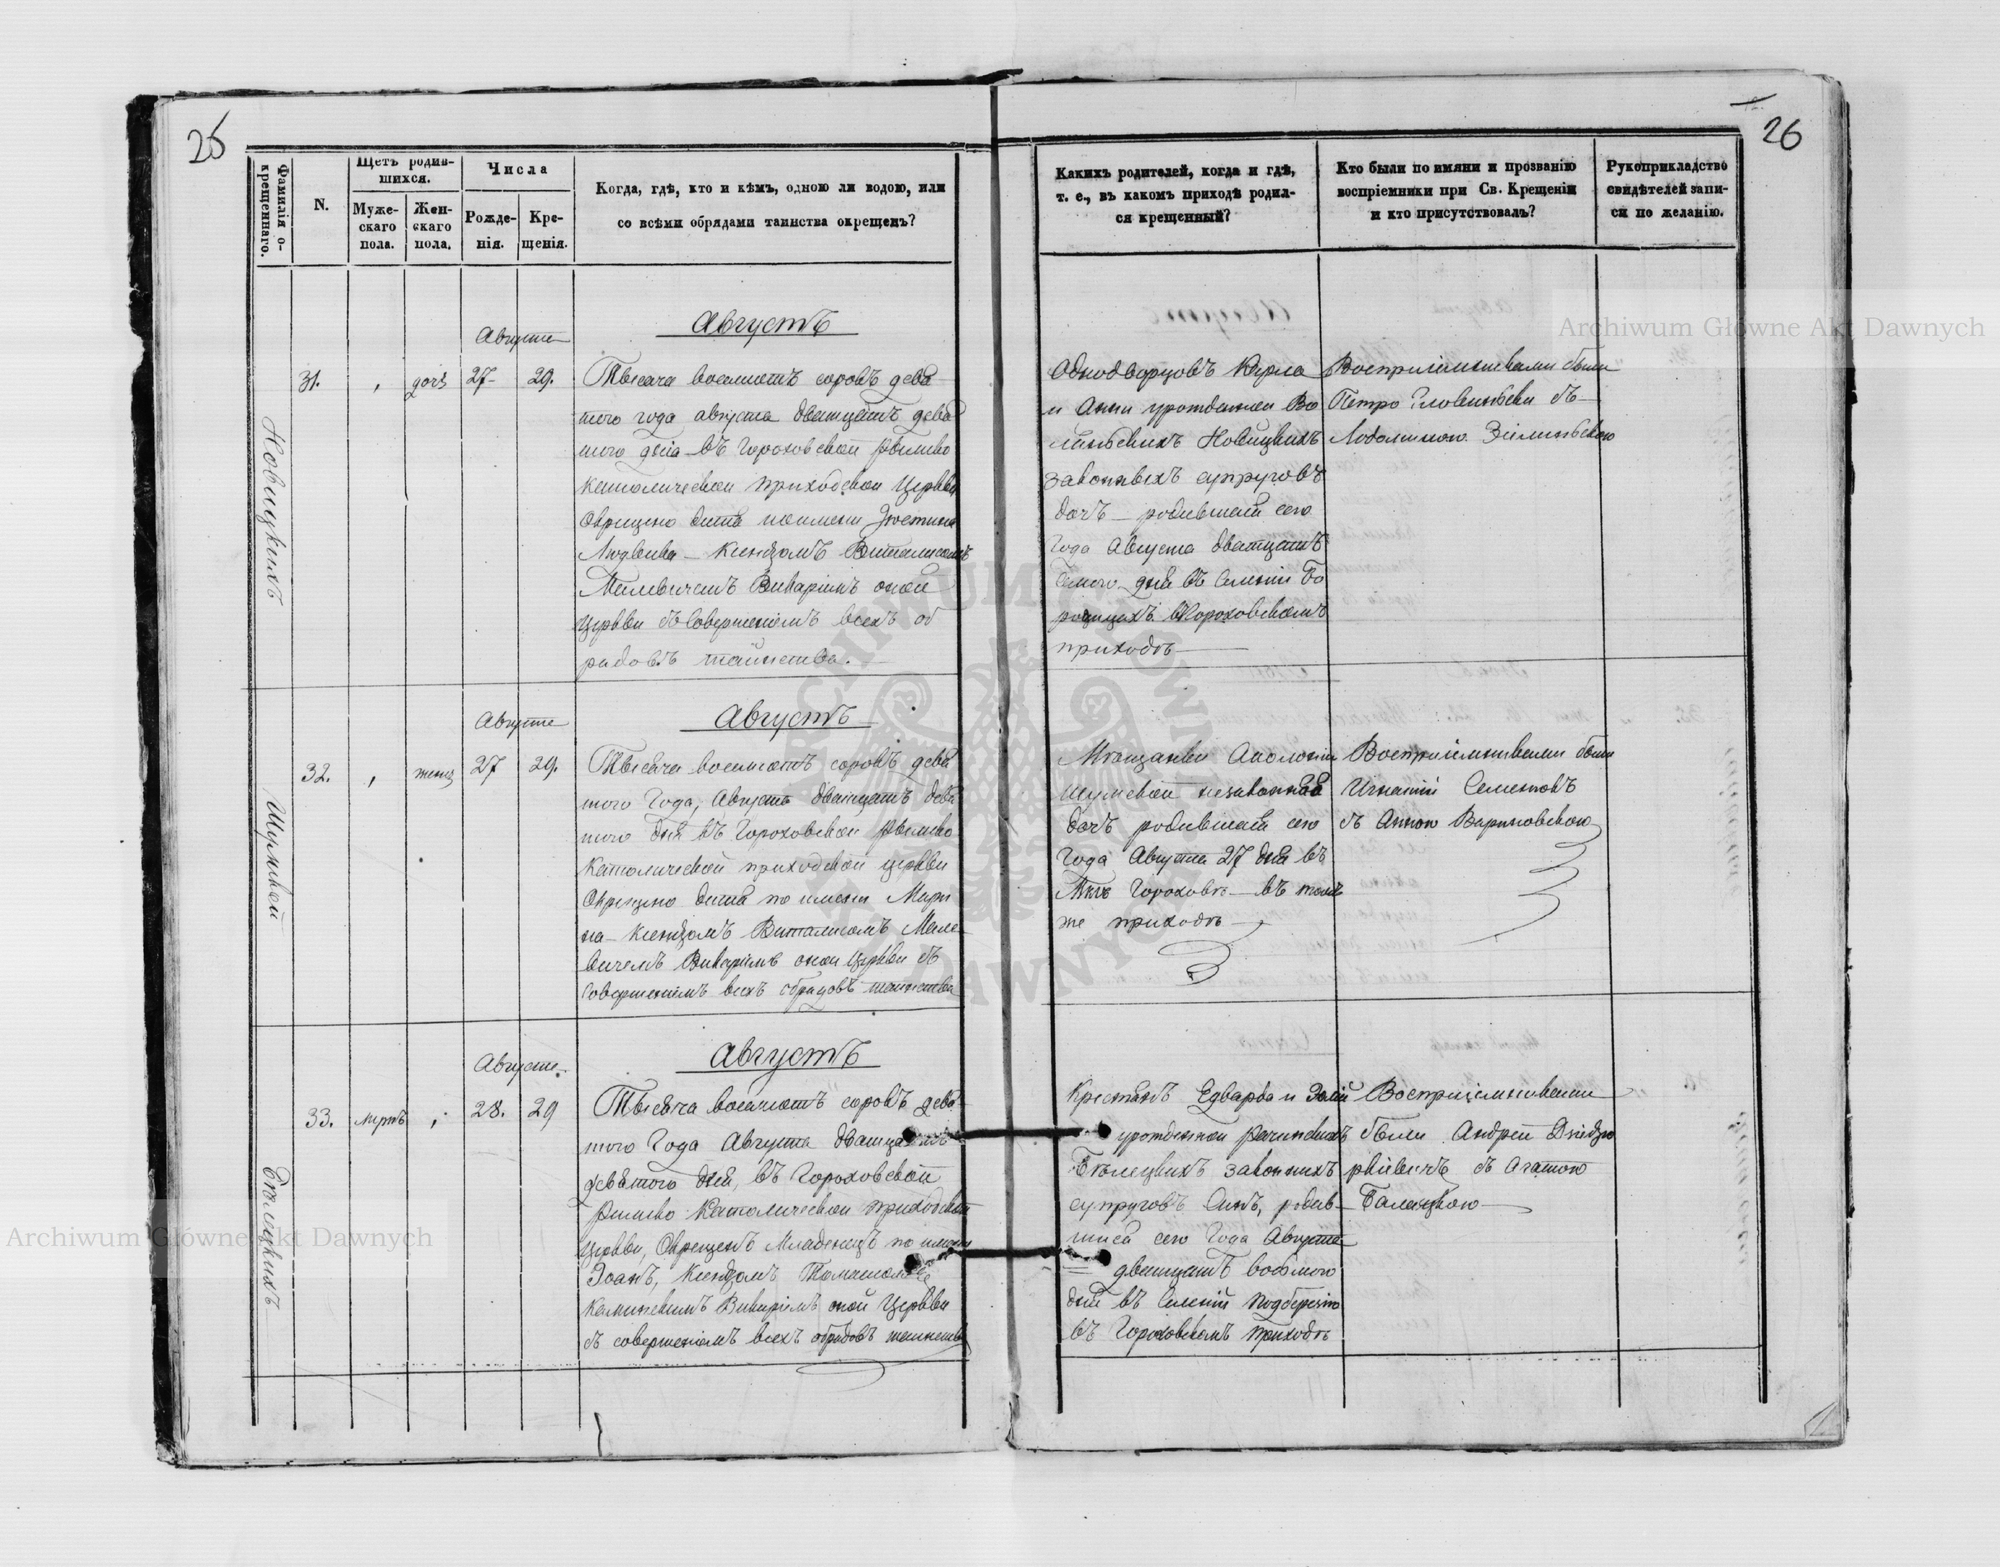 25
Фамилія о-
крещеннаго.
N.
Щетъ родив-
шихся.
Муже-
скаго
пола.
Жен-
скаго
пола.
Числа
Рожде-
нія.
Кре-
щенія.
Когда, гдѣ, кто и кѣмъ, одною ли водою, или
со всѣми обрядами таинства окрещенъ?
Новицкихъ
Августа
31.
27
29.
Августъ
Тысяча восемсотъ сорокъ девя
того года августа дватцать девя
того дня въ Гороховской Римско
католической приходской Церкви
Окрещено дитя
Людвика Ксендзомъ Виталисомъ
Викаріемъ оной
Церкви съ Совершеніемъ всехъ об
радовъ таинства.
Августа
32.
27
29.
Августъ
Тысяча восемсотъ сорокъ девя
того Года, Августа дватцать девя
того дня въ Гороховской Римско
Католической приходской церкви
Окрещено дитя по имени Мари
на Ксендзомъ Виталисомъ Миле
вичемъ Викаріемъ оной Церкви съ
Совершеніемъ всехъ обрядовъ таинства
Белецкихъ
Августа
33.
28.
29
Августъ
Тысяча восемсотъ сорокъ девя
того Года Августа дватцать
девятого дня, въ Гороховской
Римско Католической приходской
Церкви, Окрещенъ Младенецъ по имени
Іоанъ, Ксендзомъ
Викаріемъ оной Церкви
съ совершеніемъ всехъ обрядовъ таинства
26
Какихъ родителей, когда и гдѣ,
т. е., въ какомъ приходѣ родил-
ся крещенный?
Кто были по имяни и прозванію
воспріемники при Св. Крещеніи
и кто присутствовалъ?
Рукоприкладство
свидѣтелей запи-
си по желанію.
Однодворцовъ Карла
и Анни урожденной Во
Новицкихъ
законныхъ супруговъ
дочь родившаяся сего
года Августа дватцать
Семого дня въ Селеніи Бо
Гороховскомъ
приходѣ
Воспріемниками были
Петро съ
Мещанки Аполоніи
незаконная
дочь родившаяся сего
Года Августа 27 дня въ
Горохове въ томъ
же приходѣ
Воспріемниками были
Игнатій Семеновъ
съ Анною
Крестьянъ Едварда и
урожденной
Белецкихъ законныхъ
супруговъ Сынъ, родив-
шися сего Года Августа
дватцать восьмого
дня въ Селеніи
въ Гороховскомъ приходѣ
Воспріемниками
были Андрей
съ Агатою
Archiwum Główne Akt Dawnych
Archiwum Główne Akt Dawnych
ARCHIWUM GŁÓWNE AKT DAWNYCH